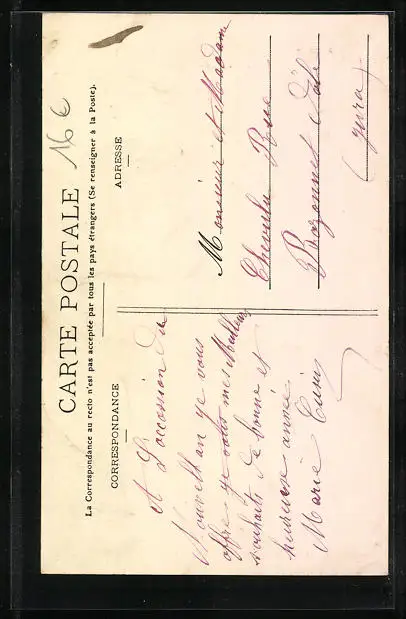 CARTE POSTALE
16 €
La Correspondance au recto n'est pas acceptée par tous les pays étrangers (Se renseigner à la Poste).
CORRESPONDANCE
ADRESSE
A l'occasion du
Nouvelle an je vous
offre je vous mes Meilleurs
souhaits de bonne et
heureuse année
Marie
Monsieur et Madame
Rue
Dôle
(Jura)